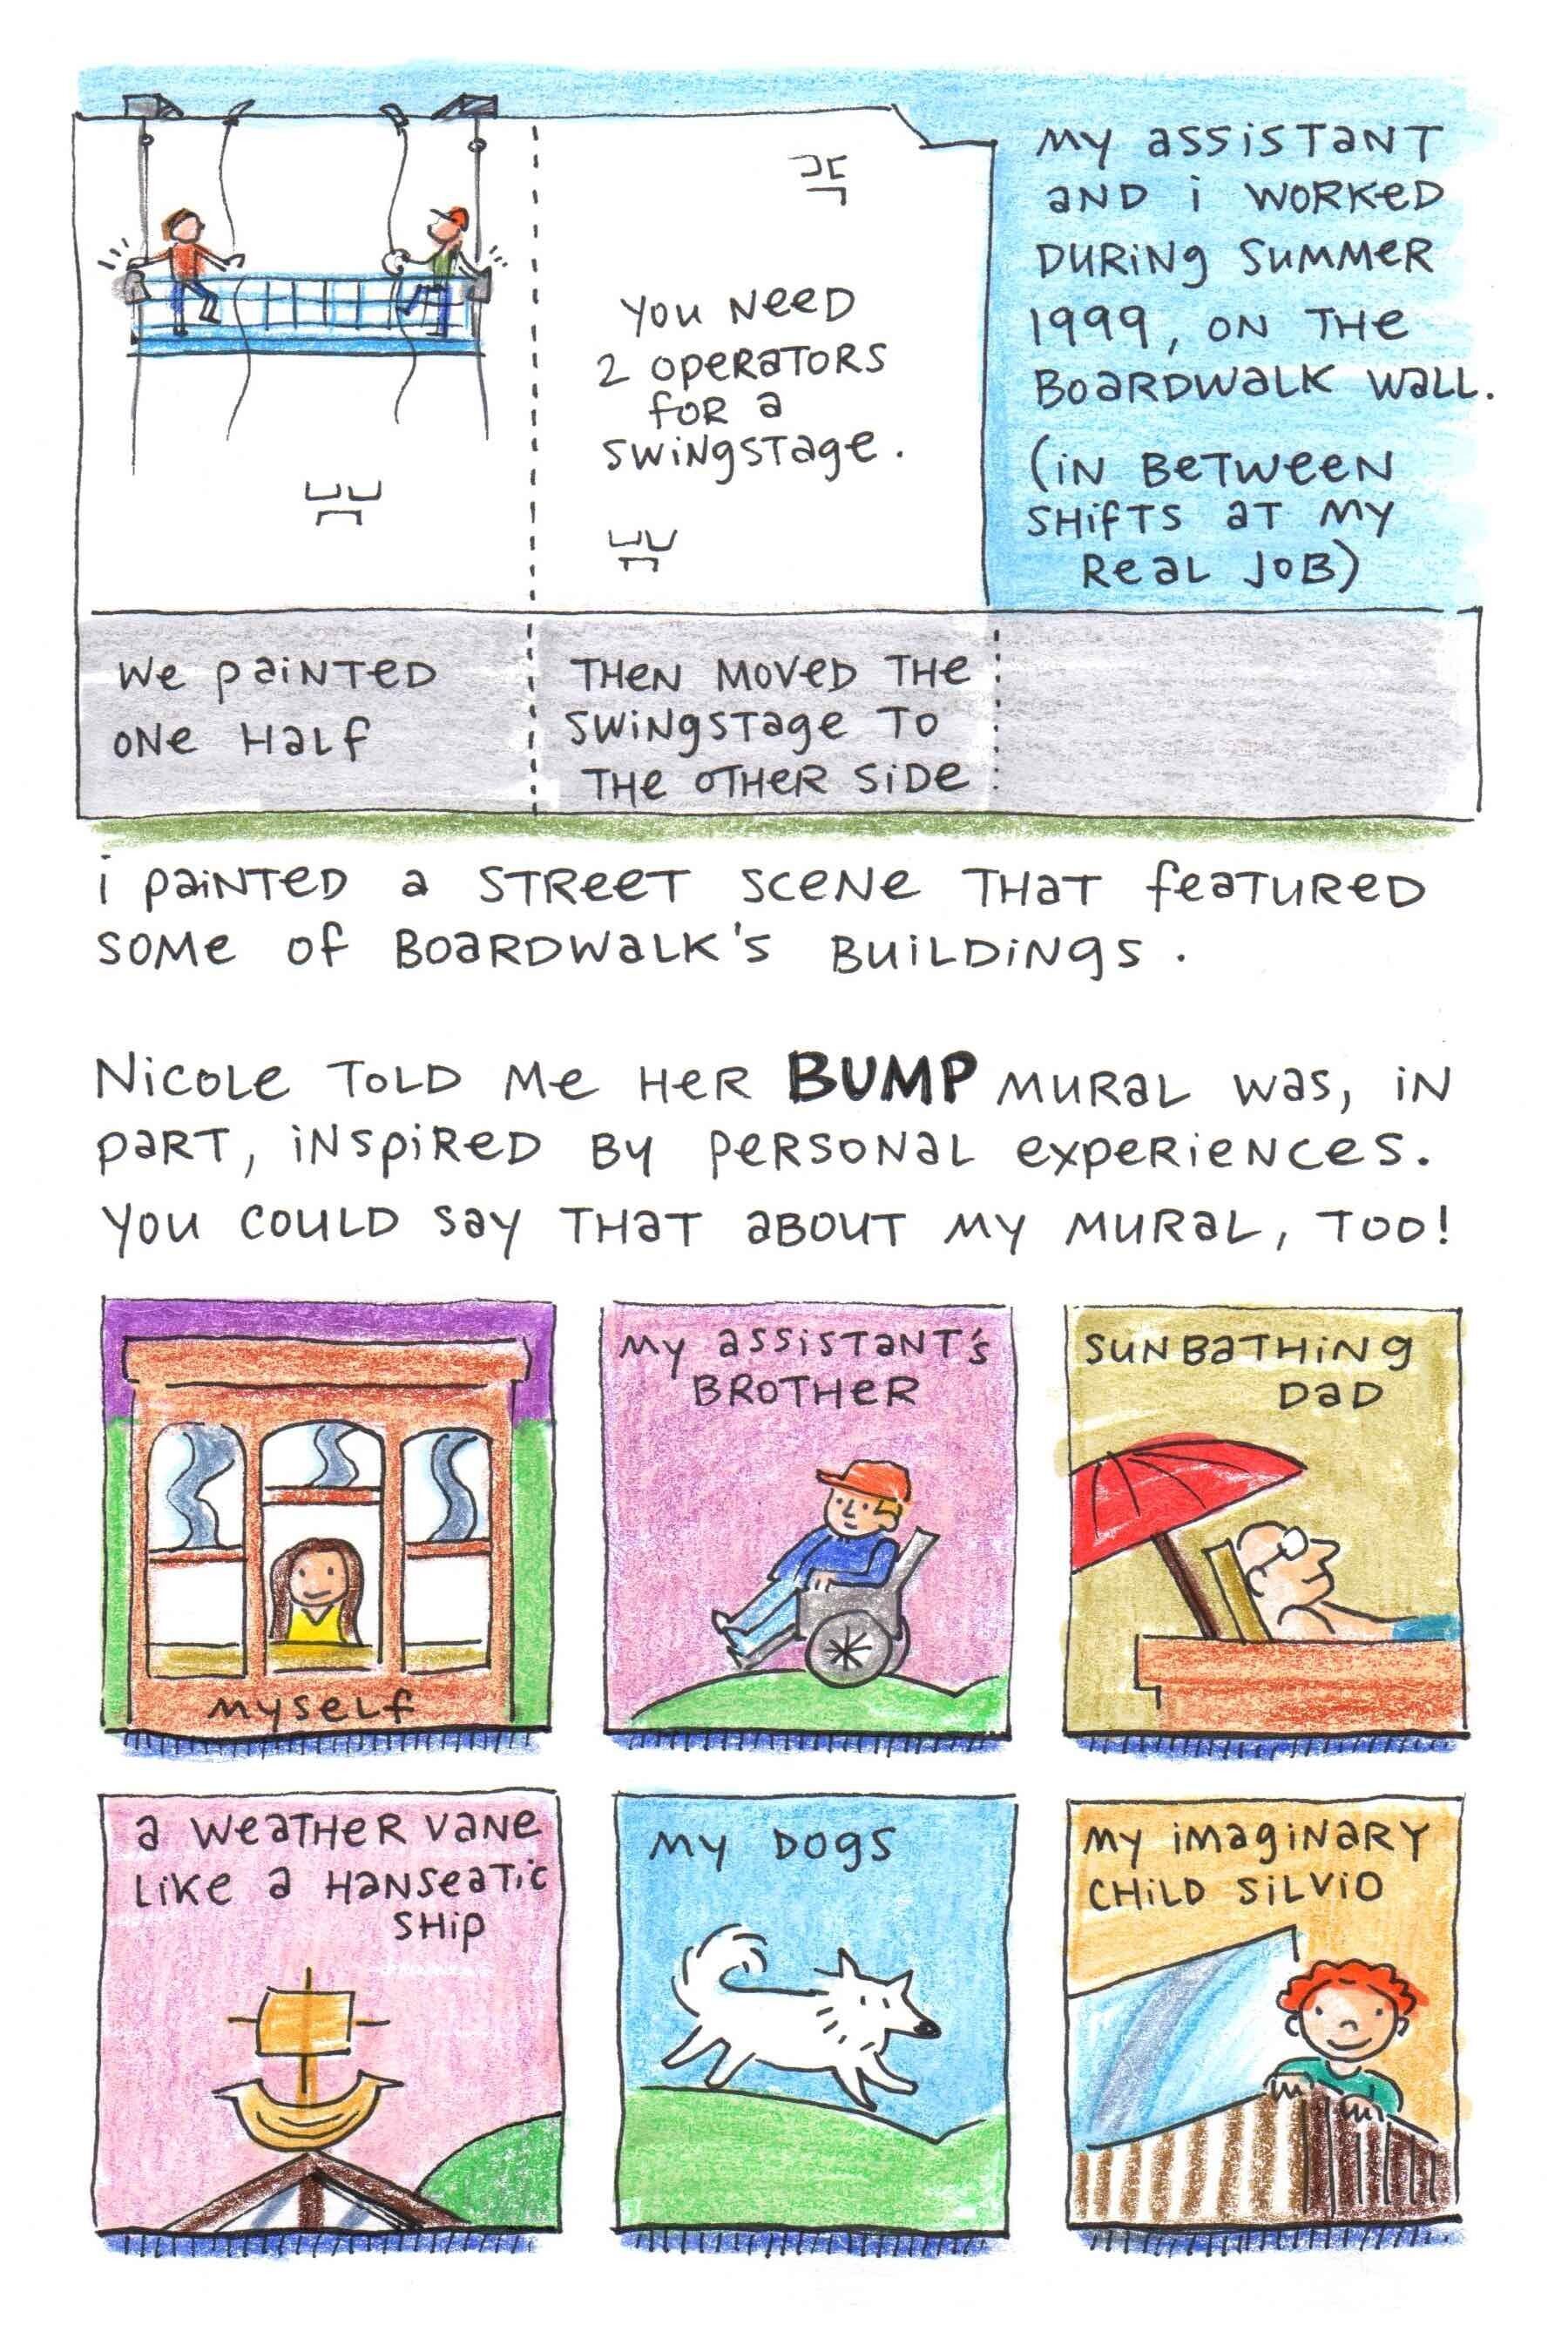 My assistant
and i worked
during summer
1999, on the
Boardwalk wall.
(in between
shifts at my
real job)
You need
2 operators
for a
swingstage.
We painted
one half
Then moved the
swingstage to
the other side
i painted a street scene that featured
some of Boardwalk's buildings.
Nicole told me her BUMP mural was, in
part, inspired by personal experiences.
You could say that about my mural, too!
myself
My assistant's
brother
Sunbathing
dad
a weather vane
like a Hanseatic
ship
My dogs
My imaginary
child Silvio